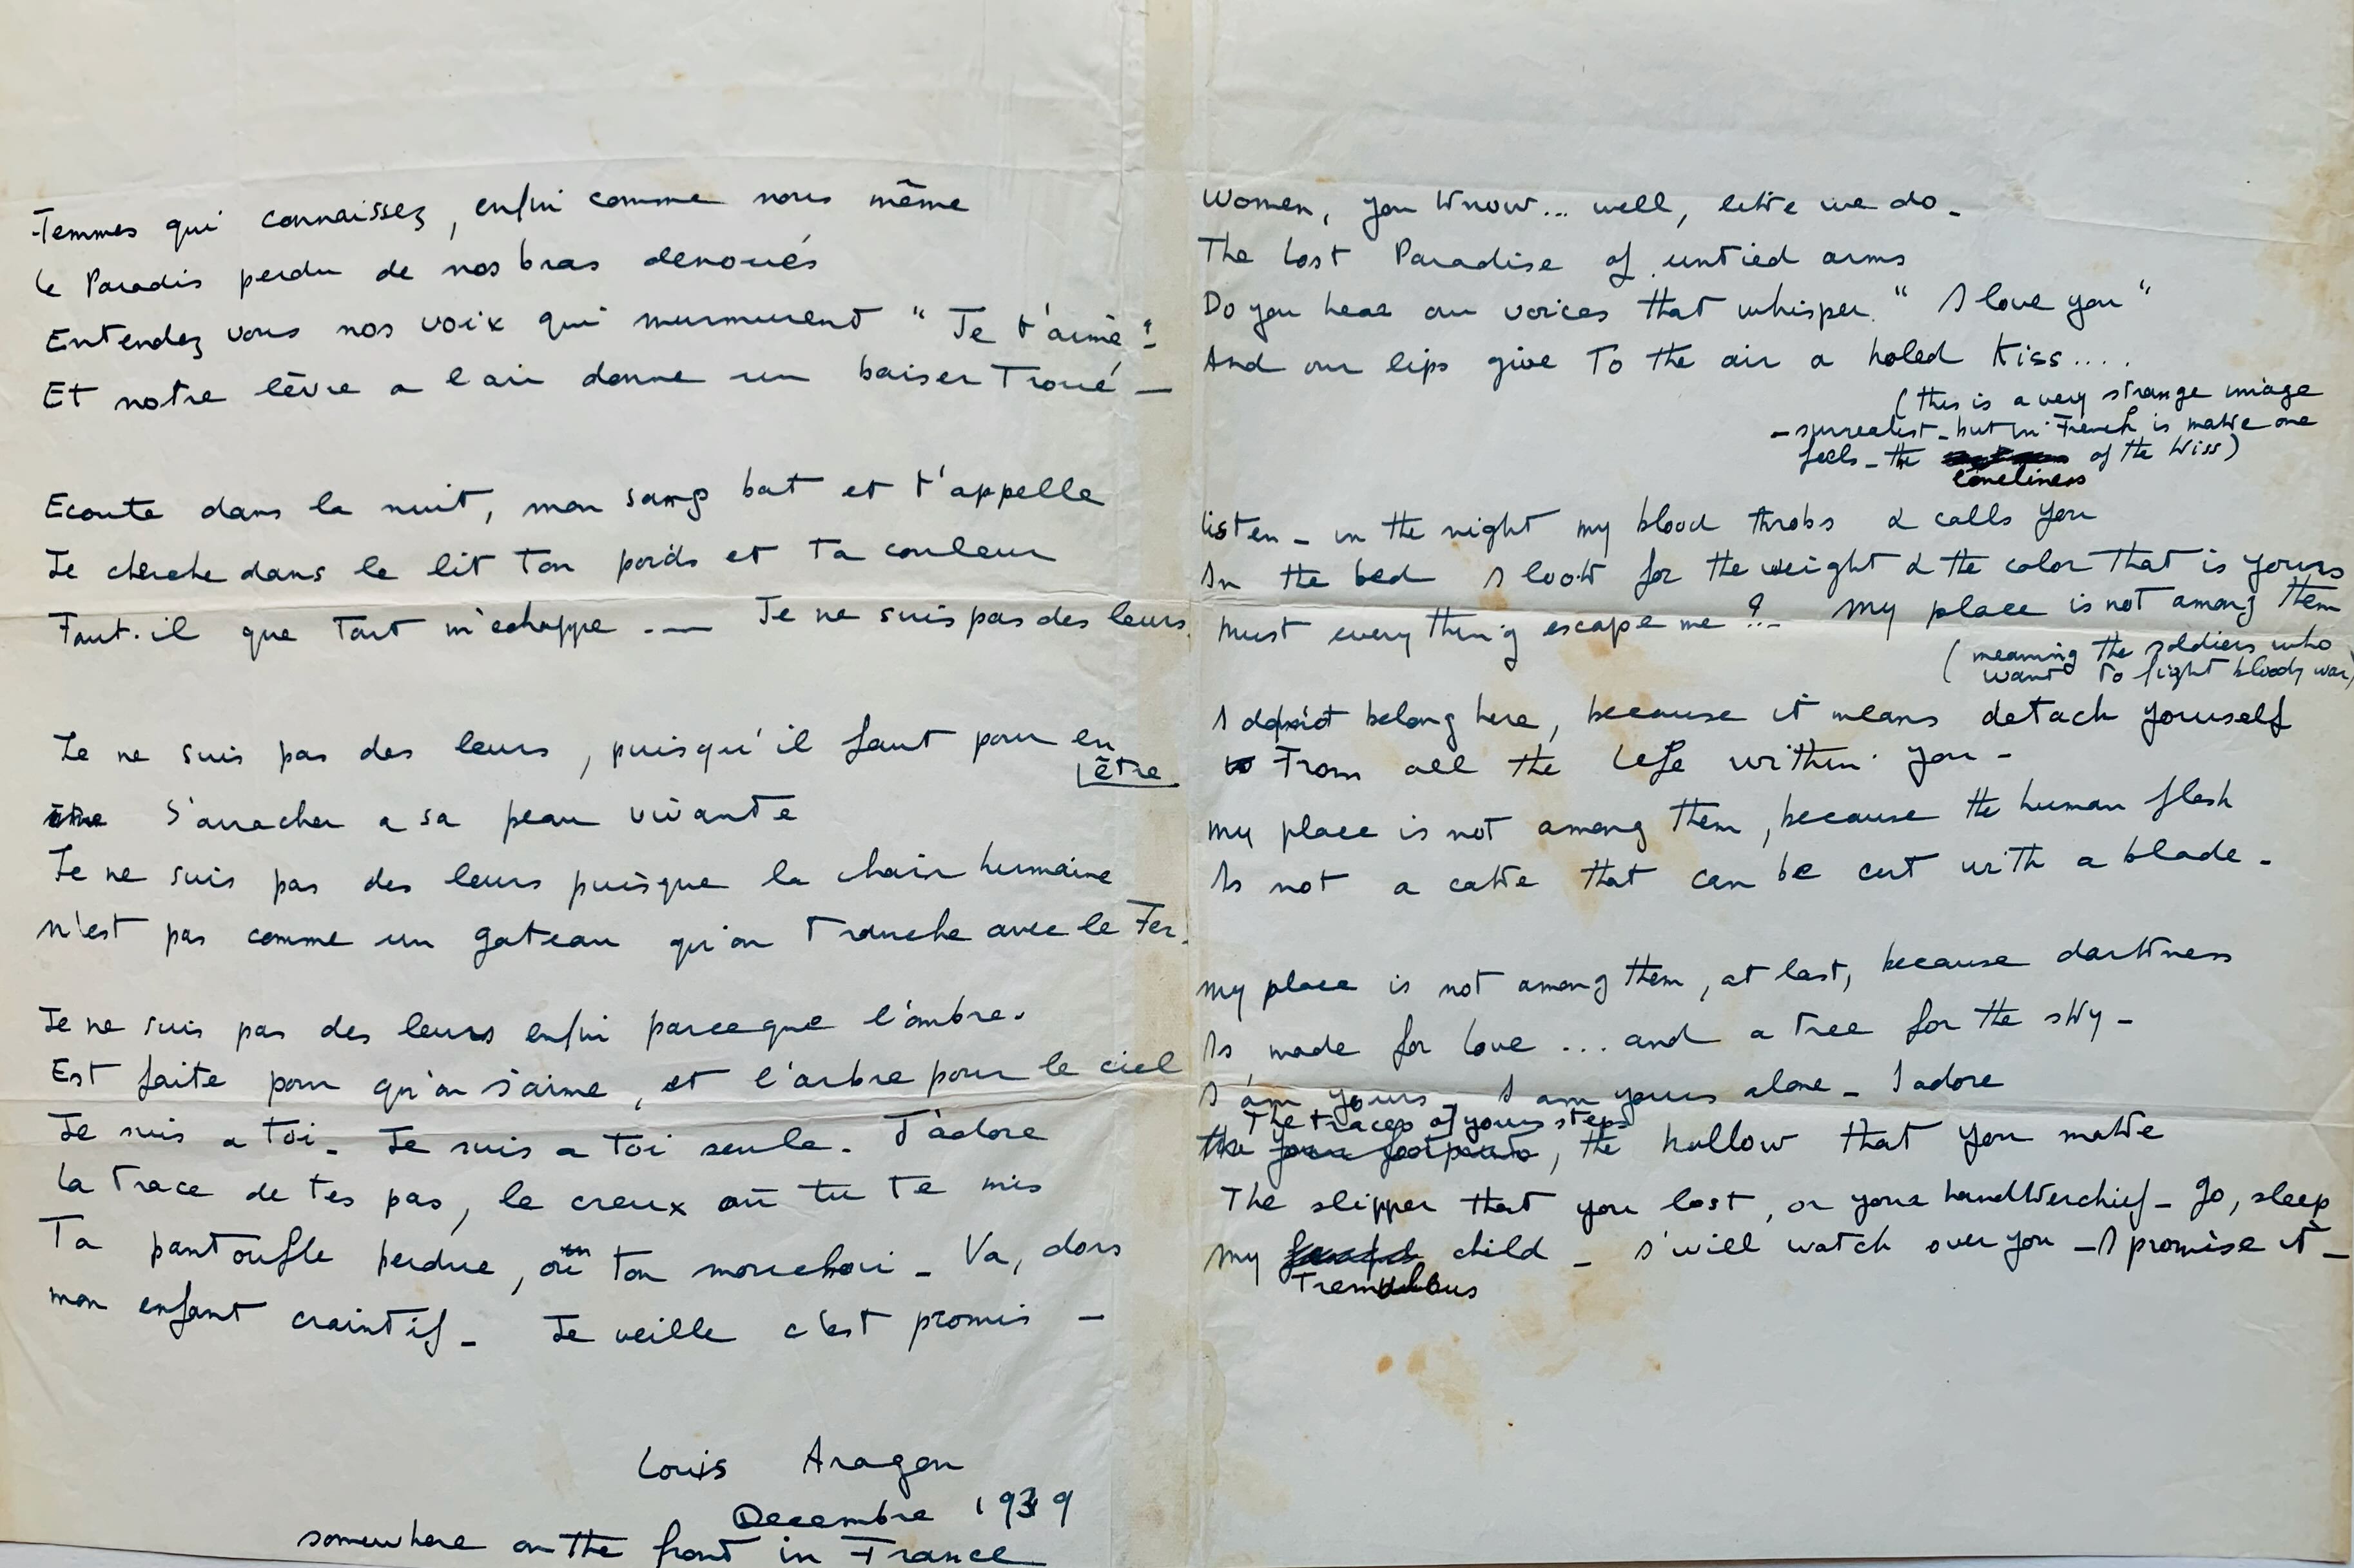 Femmes qui connaissez, enfin comme nous même
Le Paradis perdu de nos bras denoués
Entendez vous nos voix qui murmurent " Je t'aime "
Et notre lèvre a l'air donne un baiser Troué —
Ecoute dans la nuit, mon sang bat et t'appelle
Je cherche dans le lit ton poids et ta couleur
Faut-il que tout m'echappe .— Je ne suis pas des leurs.
Je ne suis pas des leurs, puisqu'il faut pour en
être
S'arracher a sa peau vivante
Je ne suis pas des leurs puisque la chair humaine
n'est pas comme un gateau qu'on tranche avec le Fer.
Je ne suis pas des leurs enfin parceque l'ombre.
Est faite pour qu'on s'aime, et l'arbre pour le ciel
Je suis a toi - Je suis a toi seule. J'adore
La trace de tes pas, le creux où tu te mis
Ta pantoufle perdue, ou ton mouchoir - Va, dors
mon enfant craintif - Je veille c'est promis -
Louis Aragon
Decembre 1939
somewhere on the front in France
Women, you know... well, like we do -
The lost Paradise of untied arms
Do you hear our voices that whisper " I love you "
And our lips give to the air a holed Kiss....
(this is a very strange image
- surrealist - but in French is make one
feels - the loneliness of the kiss)
listen - in the night my blood throbs & calls you
In the bed I look for the weight & the color that is yours
Must every thing escape me ?- My place is not among them
(meaning the soldiers who
want to fight bloody war)
I do not belong here, because it means detach yourself
From all the life within you -
my place is not among them, because the human flesh
Is not a cake that can be cut with a blade -
My place is not among them, at last, because darkness
Is made for love ... and a tree for the sky -
I am yours - I am yours alone - I adore
The traces of your steps
the your footprints, the hollow that you make
The slipper that you lost, or your handkerchief - Go, sleep
My child - I will watch over you - I promise it -
Tremulous